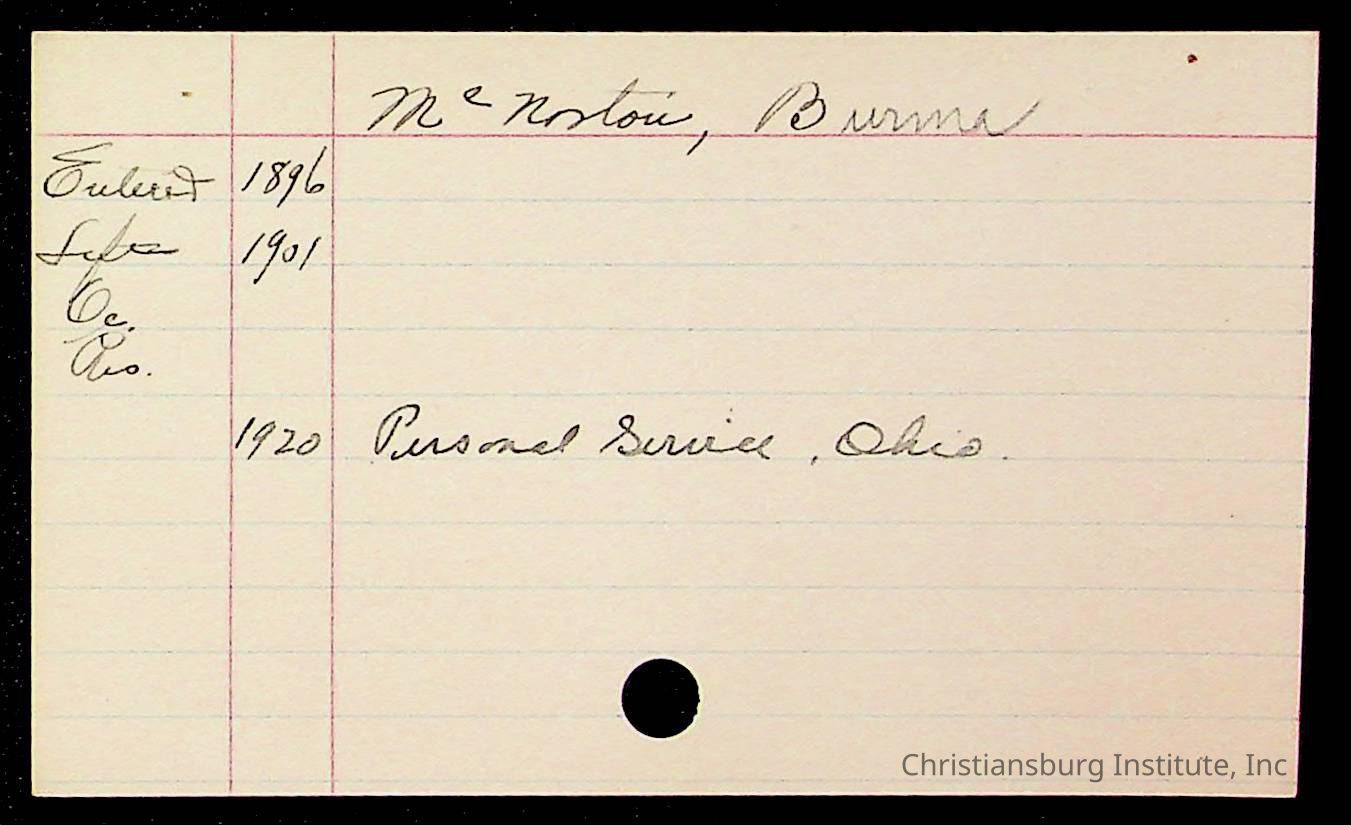 McNorton, Burma
Entered 1896
Left 1901
Oc.
Res.
1920 Personal Service, Ohio.
Christiansburg Institute, Inc